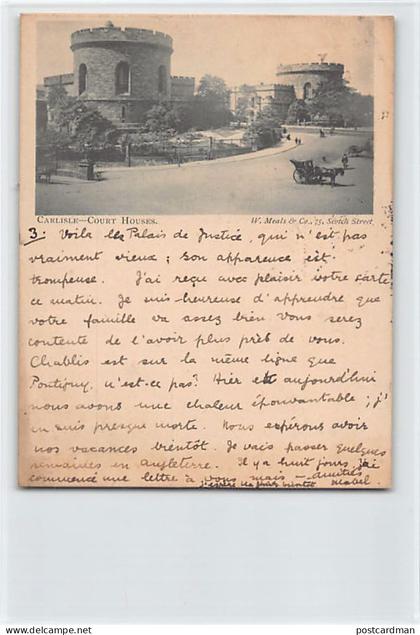 CARLISLE—COURT HOUSES.
W. Meals & Co., 75, Scotch Street
3: Voilà les Palais de Justice, qui n'est pas
vraiment vieux; son apparence est
trompeuse. J'ai reçu avec plaisir votre carte
ce matin. Je suis heureuse d'apprendre que
votre famille va assez bien vous serez
contente de l'avoir plus près de vous.
Chablis est sur la même ligne que
Pontigny, n'est-ce pas? Hier et aujourd'hui
nous avons une chaleur épouvantable; j'
en suis presque morte. Nous espérons avoir
nos vacances bientôt. Je vais passer quelques
semaines en Angleterre. Il y a huit jours j'ai
commencé une lettre à vous mais — amitiés
Mabel
postcardman
© www.delcampe.net